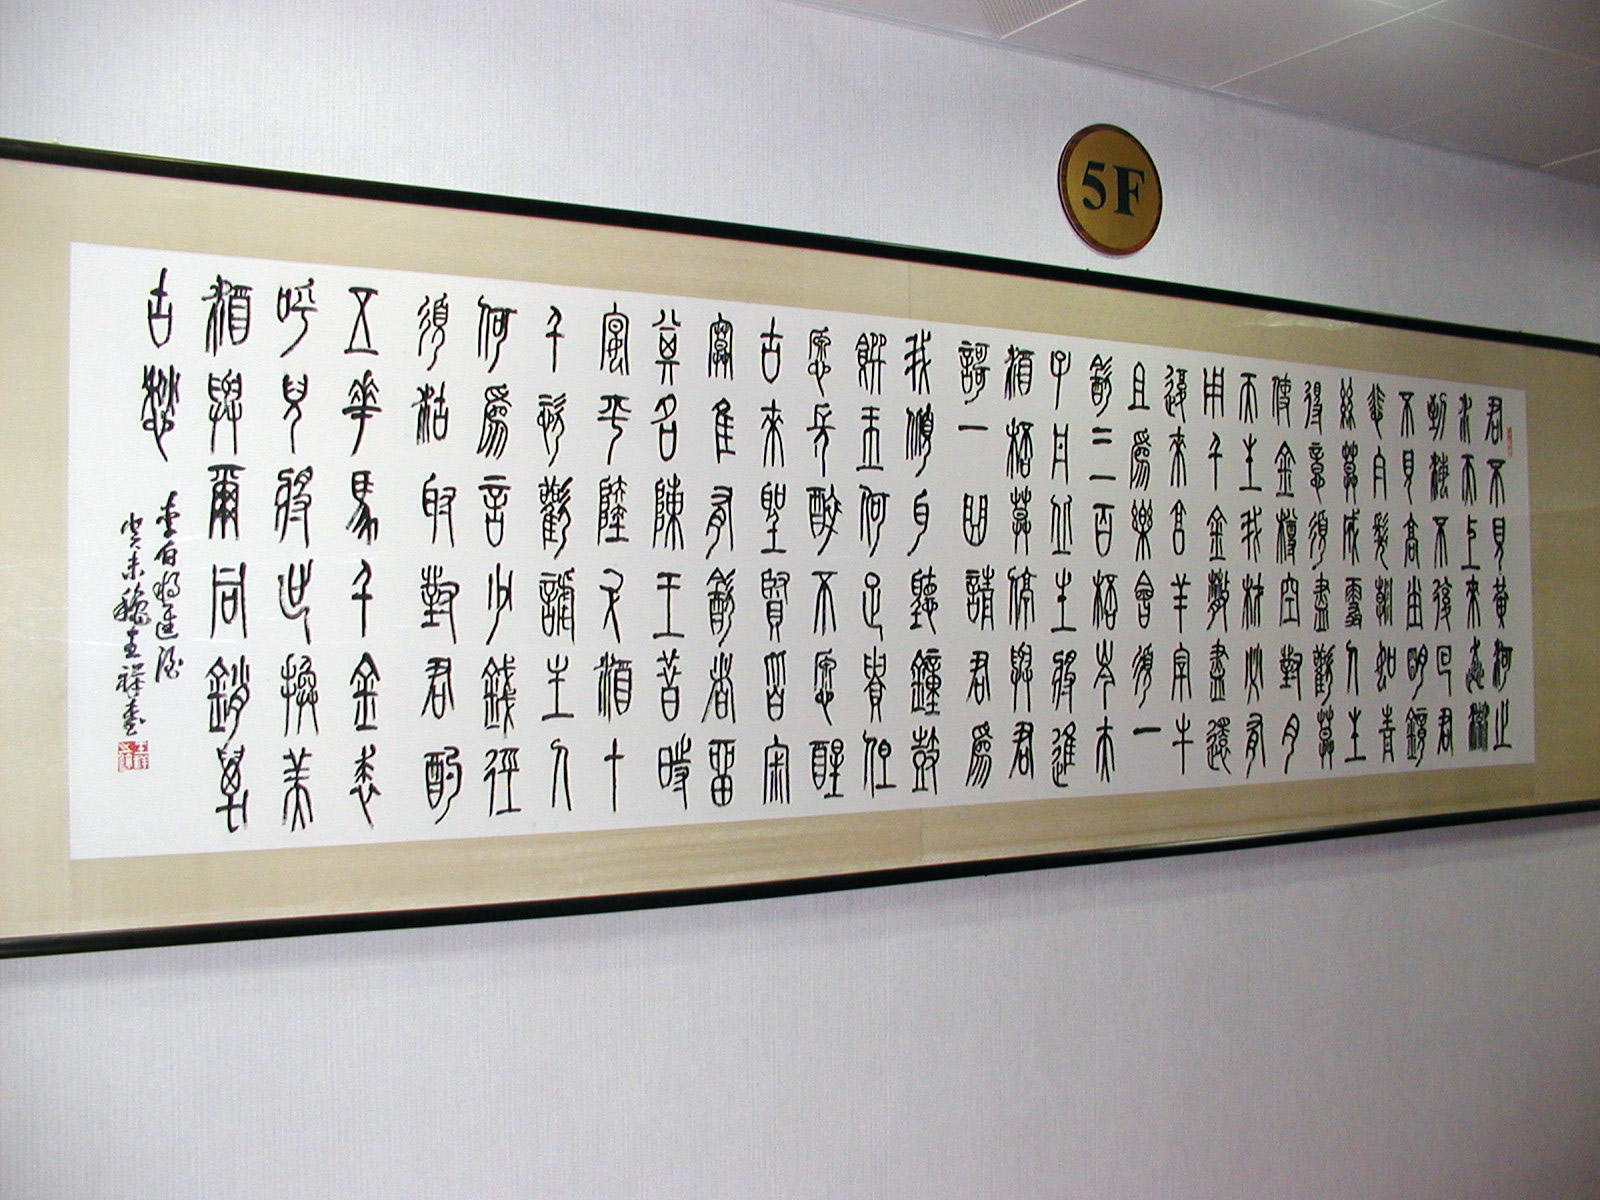 5F
君不見黃河之
水天上來奔流
到海不復回君
不見高堂明鏡
悲白髮朝如青
絲暮成雪人生
得意須盡歡莫
使金樽空對月
天生我材必有
用千金散盡還
復來烹羊宰牛
且爲樂會須一
飲三百杯岑夫
子丹丘生將進
酒杯莫停與君
歌一曲請君爲
我傾耳聽鐘鼓
饌玉何足貴但
願長醉不願醒
古來聖賢皆寂
寞惟有飲者留
其名陳王昔時
宴平樂斗酒十
千恣歡謔主人
何爲言少錢徑
須沽取對君酌
五華馬千金裘
呼兒將出換美
酒與爾同銷萬
古愁
李白將進酒
癸未穐王祥書